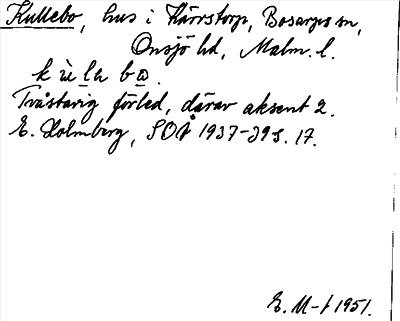 Kullebo, hus i Kärrstorp, Bosarps sn,
Onsjö hd, Malm. l.
k ù l a b o.
Tvåstavig förled, därav aksent 2.
E. Holmberg, SOÅ 1937-39 s. 17.
E. M-t 1951.